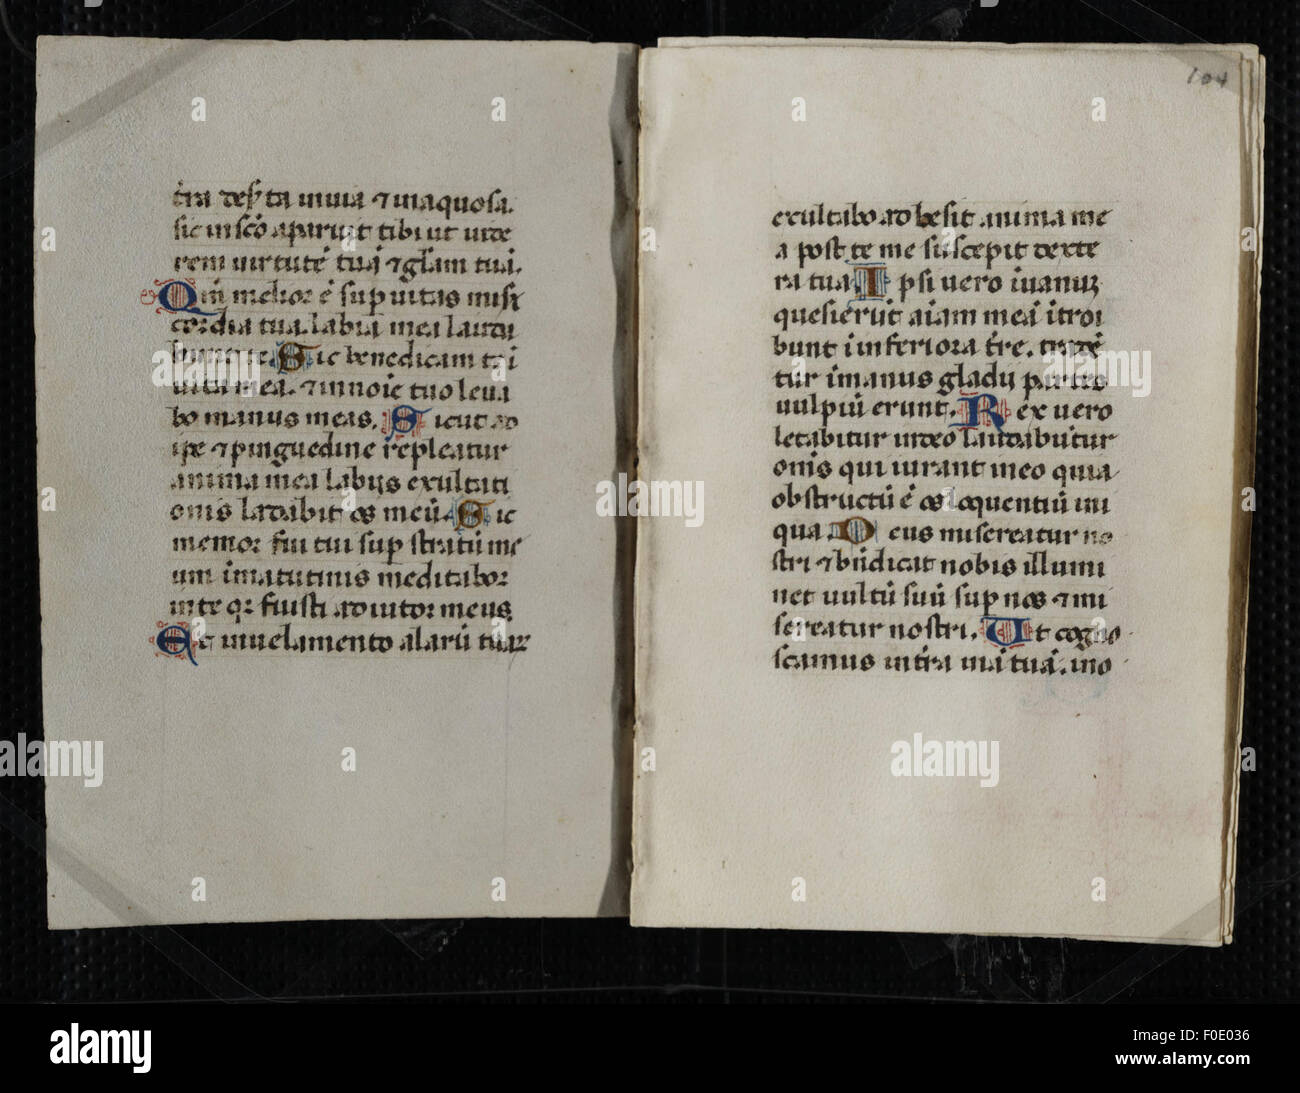 t̄ra des̄ta inuia ⁊ inaquosa.
sic in sc̄o aparuit tibi ut uide
rem uirtutē tuā ⁊ glām tuā.
Qm̄ melior ē sup uitas miſi
cordia tua. labia mea laudā
bunt te. Sic benedicam te ī
uita mea. ⁊ in noīe tuo leua
bo manus meas. Sicut ad
ipe ⁊ pinguedine repleatur
anima mea labijs exultati
onis laudabit os meū. Sic
memor fui tui sup stratū me
um ī matutinis meditabor
in te qr fuisti adiutor meus
Et in uelamento alarū tuar
104
exultabo. adhesit anima me
a post te me suscepit dexte
ra tua. Ipsi uero ī uanuz
quesierūt aīam meā ītroi
bunt ī inferiora t̄re. tradē
tur ī manus gladij partes
uulpiū erunt. Rex uero
letabitur ī deo laudabūtur
om̄s qui iurant in eo quia
obstructū ē os loquentiū ini
qua. Deus misereatur no
stri ⁊ bn̄dicat nobis illumi
net uultū suū sup nos ⁊ mi
sereatur nostri. Ut cogno
scamus in t̄ra uiā tuā. in o
alamy
alamy
Image ID: F0E036
www.alamy.com